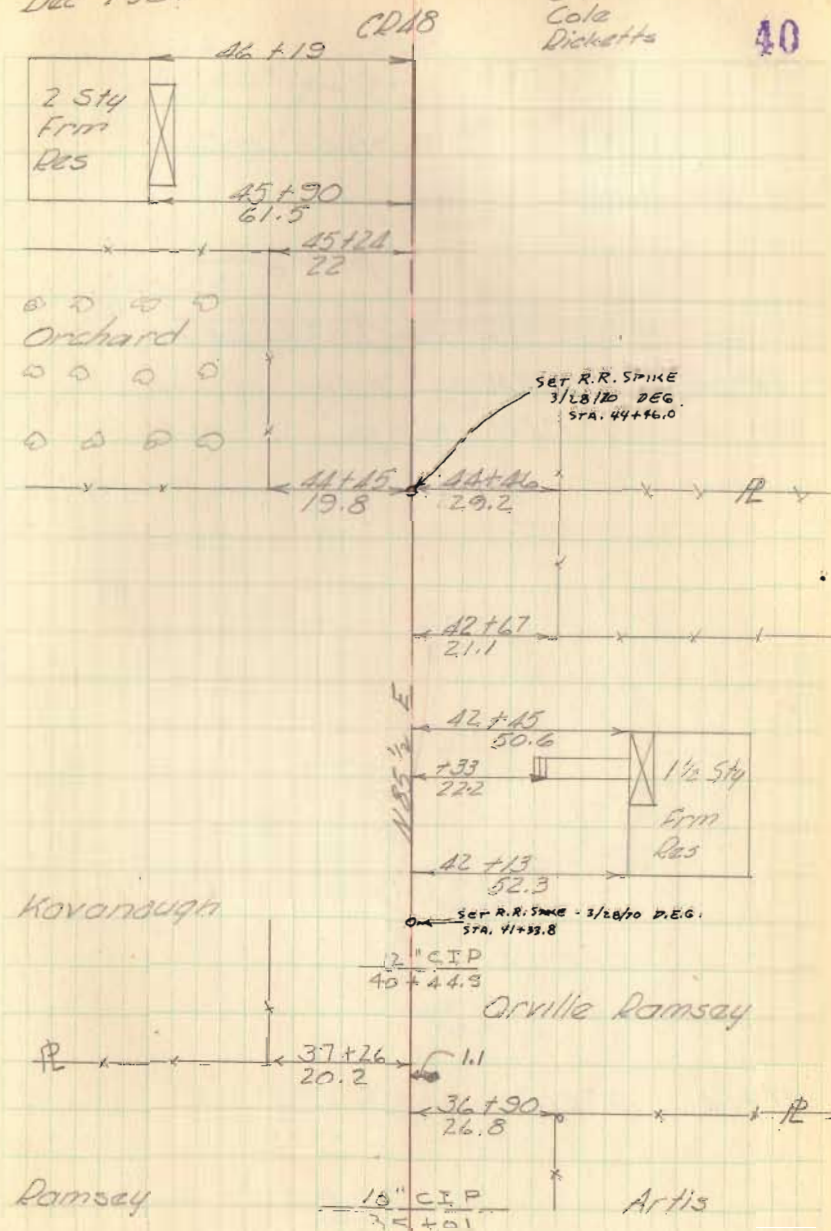 CR48
Cole
Ricketts
40
46 +19
2 Sty
Frm
Res
45 +90
61.5
45+24
22
Orchard
SET R.R. SPIKE
3/28/70 DEG.
STA. 44+46.0
44+45
19.8
44+46
29.2
PL
42 +67
21.1
N85 ½ E
42 +45
50.6
+33
22.2
1½ Sty
Frm
Res
42 +13
52.3
Kavanaugh
SET R.R. SPIKE - 3/28/70 D.E.G.
STA. 41+33.8
12" CIP
40 +44.9
Orville Ramsey
PL
37 +26
20.2
1.1
36 +90
26.8
PL
Ramsey
CIP
35 +01
Artis